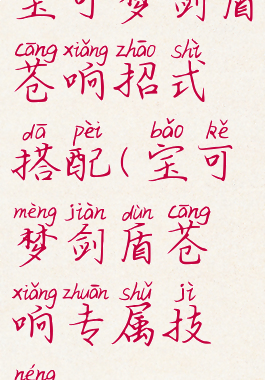 宝可梦剑盾
cāng xiǎng zhāo shì
苍响招式
dā pèi bǎo kě
搭配(宝可
mèng jiàn dùn cāng
梦剑盾苍
xiǎng zhuān shǔ jì
响专属技
néng